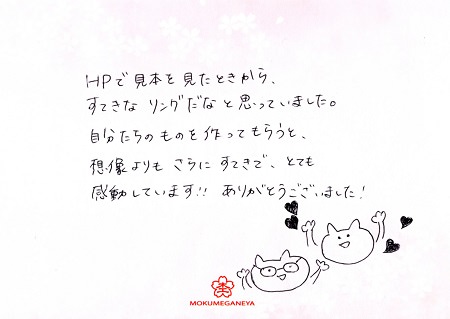 HPで見本を見たときから、
すてきな リングだなと思っていました。
自分たちのものを作ってもらうと、
想像よりも さらに すてきで、とても
感動しています!! ありがとうございました!
MOKUMEGANEYA